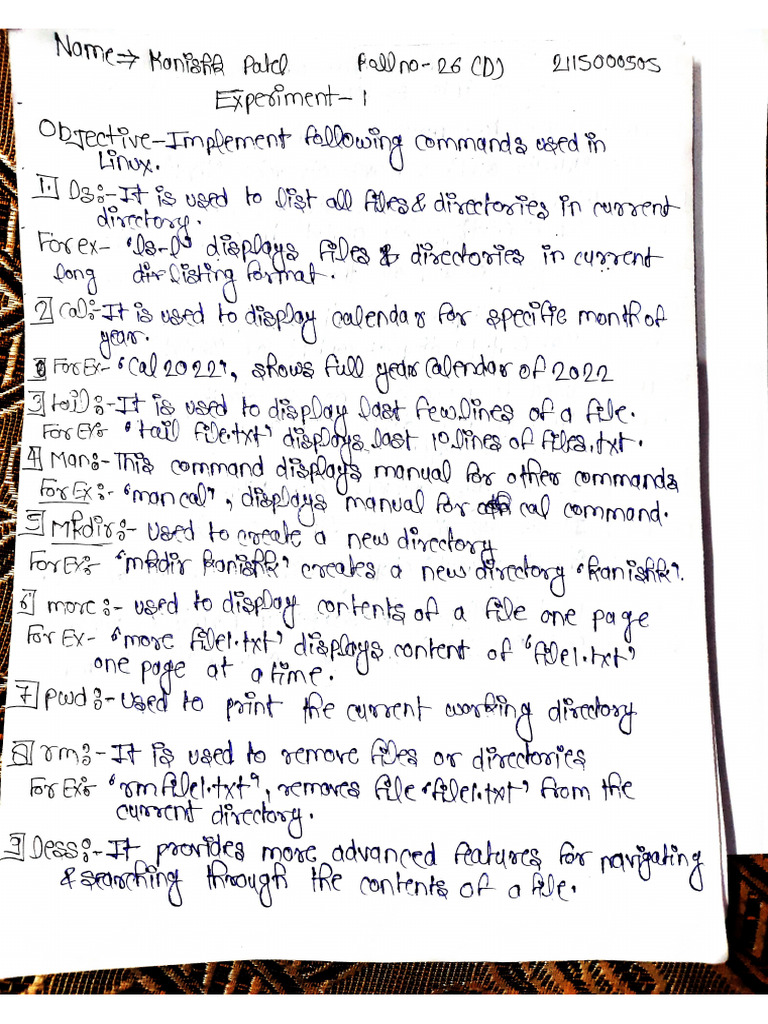 Name⇒ Kanishk Patel Roll no- 26 (D) 2115000505
Experiment-1
Objective-Implement following commands used in
Linux.
1. Ls:-It is used to list all files & directories in current
directory.
For ex- 'ls-l' displays files & directories in current
long dir listing format.
2 Cal:-It is used to display calendar for specific month of
year.
For Ex- 'Cal 2022', shows full year Calendar of 2022
3 tail:-It is used to display last few lines of a file.
For Ex: 'tail file.txt' displays last 10 lines of files.txt.
4 Man:-This command displays manual for other commands
For Ex:- 'man cal', displays manual for cal command.
5 Mkdir:- used to create a new directory
For Ex:- 'mkdir kanishk' creates a new directory 'kanishk'.
6 more:- used to display contents of a file one page
For Ex- 'more file1.txt' displays content of 'file1.txt'
one page at a time.
7 pwd:-used to print the current working directory
8 rm:-It is used to remove files or directories
For Ex:- 'rm file1.txt', removes file 'file1.txt' from the
current directory.
9 Less:-It provides more advanced features for navigating
& searching through the contents of a file.